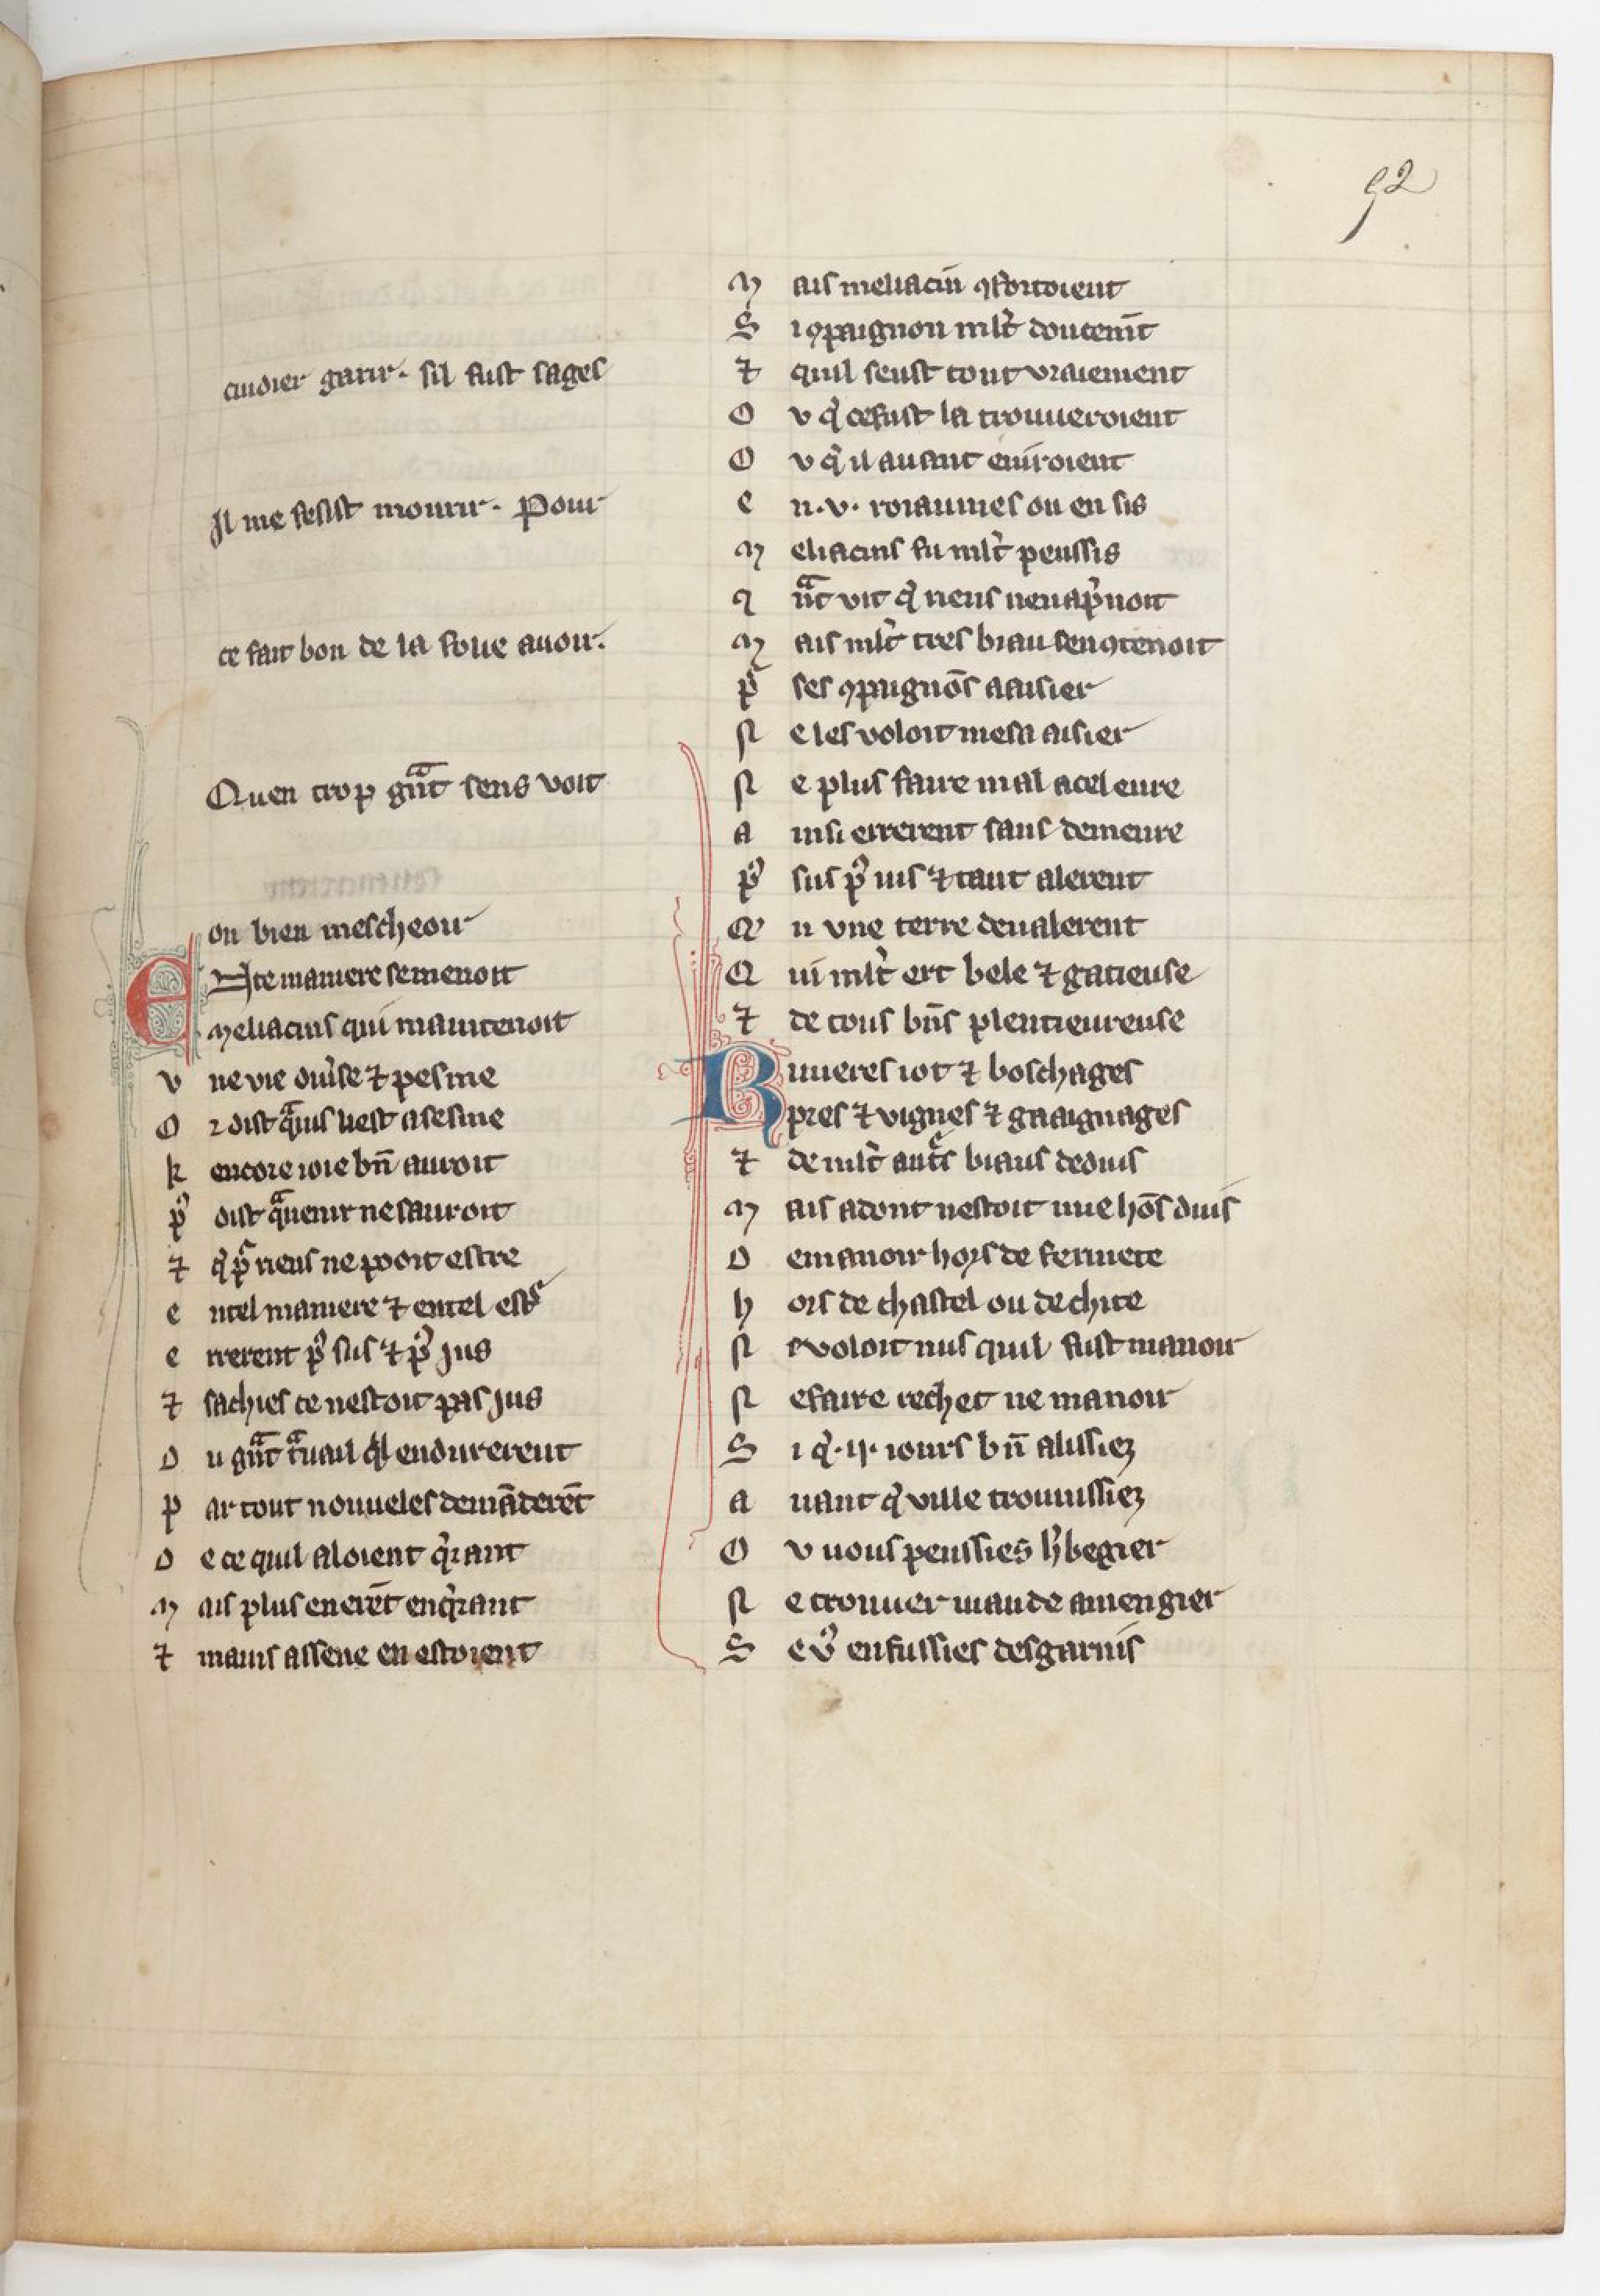 92
cuidier garir. sil fust sages
Il me fesist mourir. Pour
ce fait bon de la soue auoir.
Quen trop gnᵃt sens voit
on bien mescheoir
En ce maniere se menoit
Meliacins qui maintenoit
v ne vie diu'se ⁊ pesme
O r dist qᵃuis li est asesme
k encore ioie bn̄ auroit
p' dist qᵃuenir ne sauroit
⁊ q' pʳ riens ne pooit estre
e ntel maniere ⁊ entel estʳ
e rrerent p' sus ⁊ p' jus
⁊ sachies ce nestoit pas jus
D u gnᵃt tᵃuail q'l endurerent
p ar tout nouueles demāderēt
D e ce quil aloient q'rant
M ais plus en erēt enq'rant
⁊ mains assene en estoient
M ais meliacin ꝯfortoient
S i ꝯpaignon mlt' doucemēt
⁊ quil seust tout vraiement
O v q' ce fust la trouueroient
O v q' il ausmt enuiroient
e n .v. roiaumes ou en sis
M eliacins fu mlt' penssis
q nᵃt vit q' riens nen ap'noit
M ais mlt' tres biau sen ꝯtenoit
pʳ ses ꝯpaignōs aaisier
N e les voloit mesaaisier
N e plus faire mal a cel eure
a insi errerent sans demeure
p' sus p' ius ⁊ tant alerent
Q' n vne terre deualerent
Q ui mlt' ert bele ⁊ gracieuse
⁊ de tous bn̄s plentieureuse
Riuieres iot ⁊ boschages
pres ⁊ vignes ⁊ gaaignages
⁊ de mlt' autʳs biaus deduis
M ais adont nestoit nue hōs duis
D e manoir hors de fermete
h ors de chastel ou de chite
N e voloit nus quil fust manoir
N e faire rechet ne manoir
S i q' .ij. iours bn̄ alissiez
a uant q' ville trouuissiez
O v uous peussies h'begier
N e trouuer uiande a mengier
S e v' en fussies desgarnis